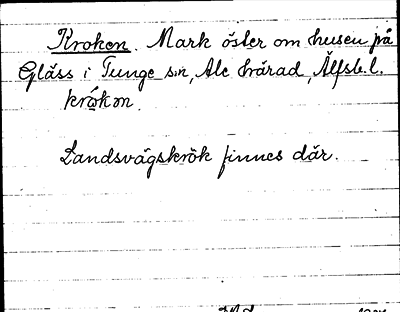 Kroken. Mark öster om husen på
Gläss i Tunge sn, Ale härad, Älfsb. l.
Landsvägskrök finnes där.